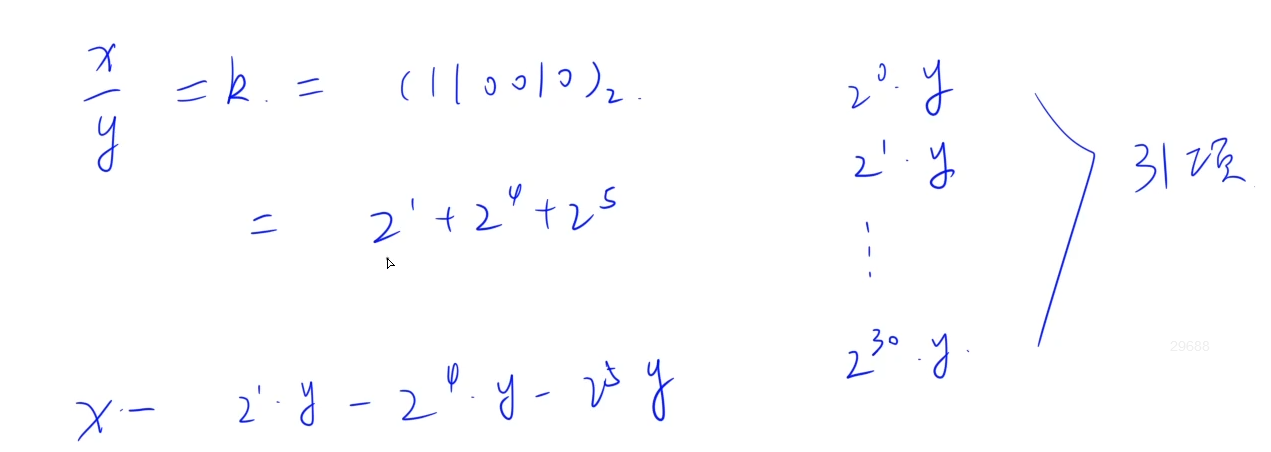 x/y = k. = (110010)₂.
= 2¹ + 2⁴ + 2⁵
x - 2¹·y - 2⁴·y - 2⁵ y
2⁰·y
2¹·y
⋮
2³⁰·y.
31项
29688